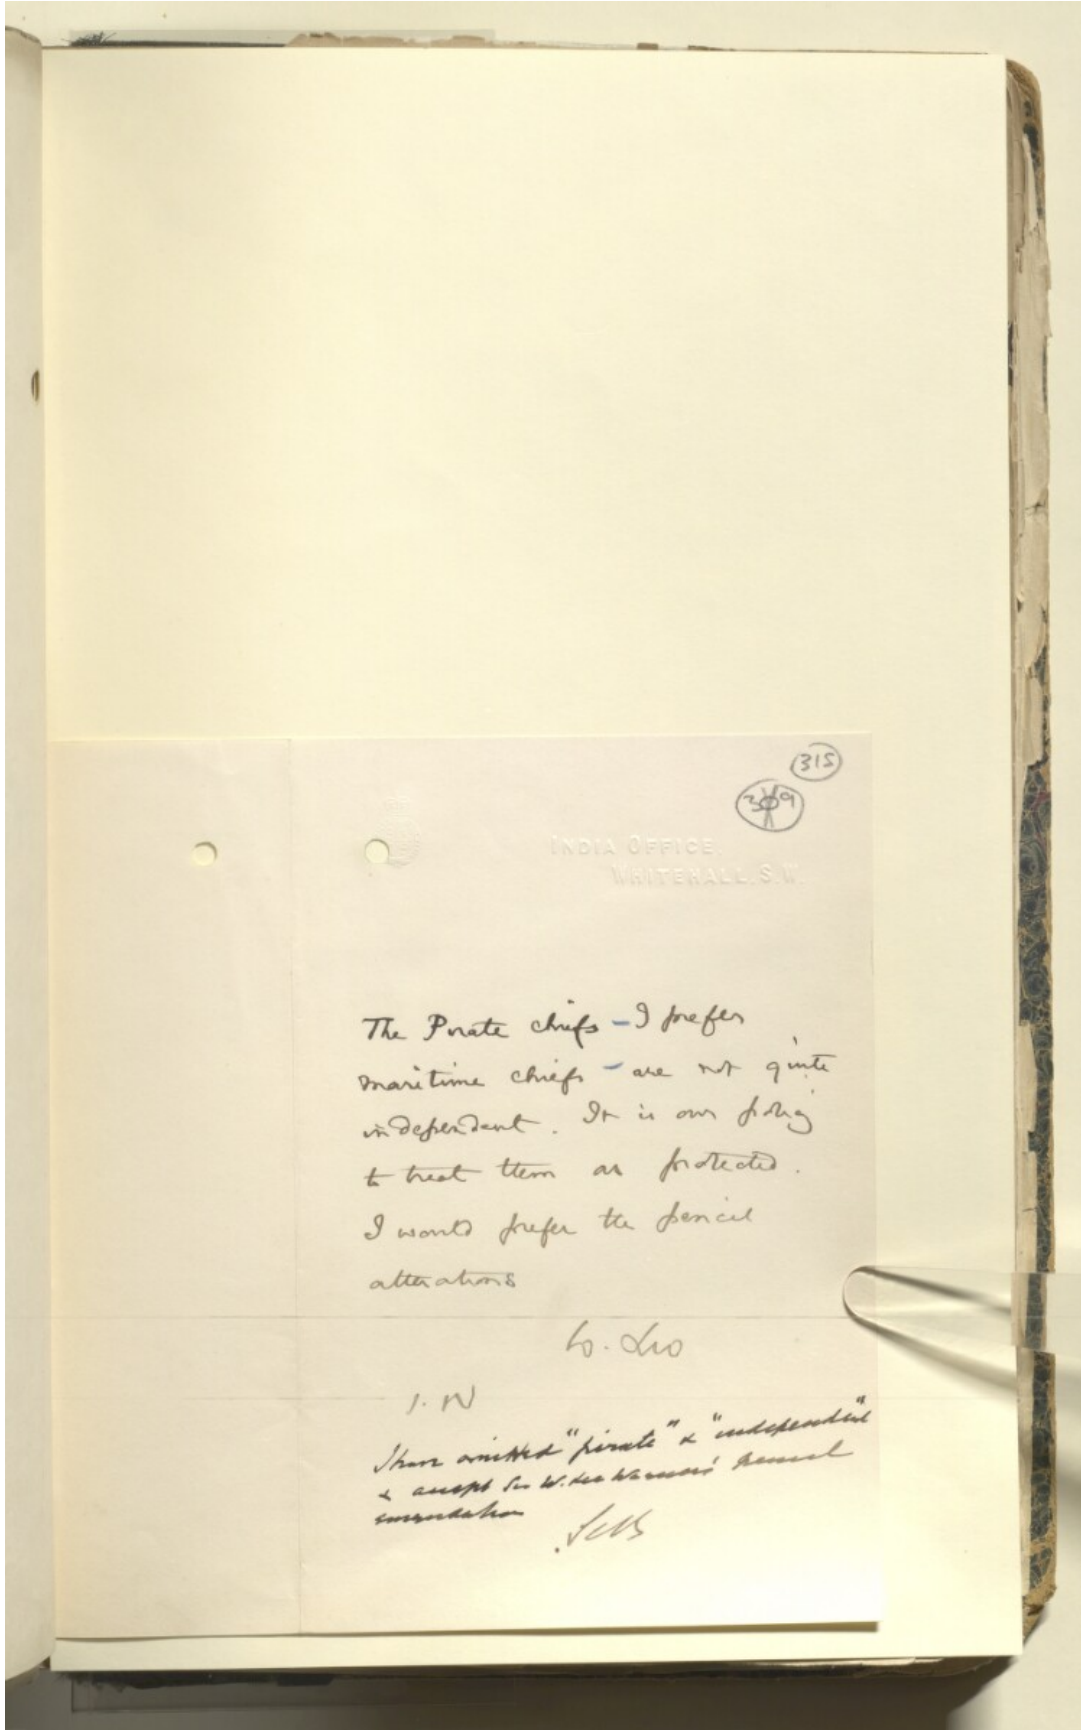 315
309
INDIA OFFICE,
WHITEHALL. S.W.
The Pirate chiefs - I prefer
maritime chiefs - are not quite
independent. It is our policy
to treat them as protected.
I would prefer the pencil
alterations
I have omitted "pirate" & "independent"
& accept Sir W. Lee Warner's pencil
emendation